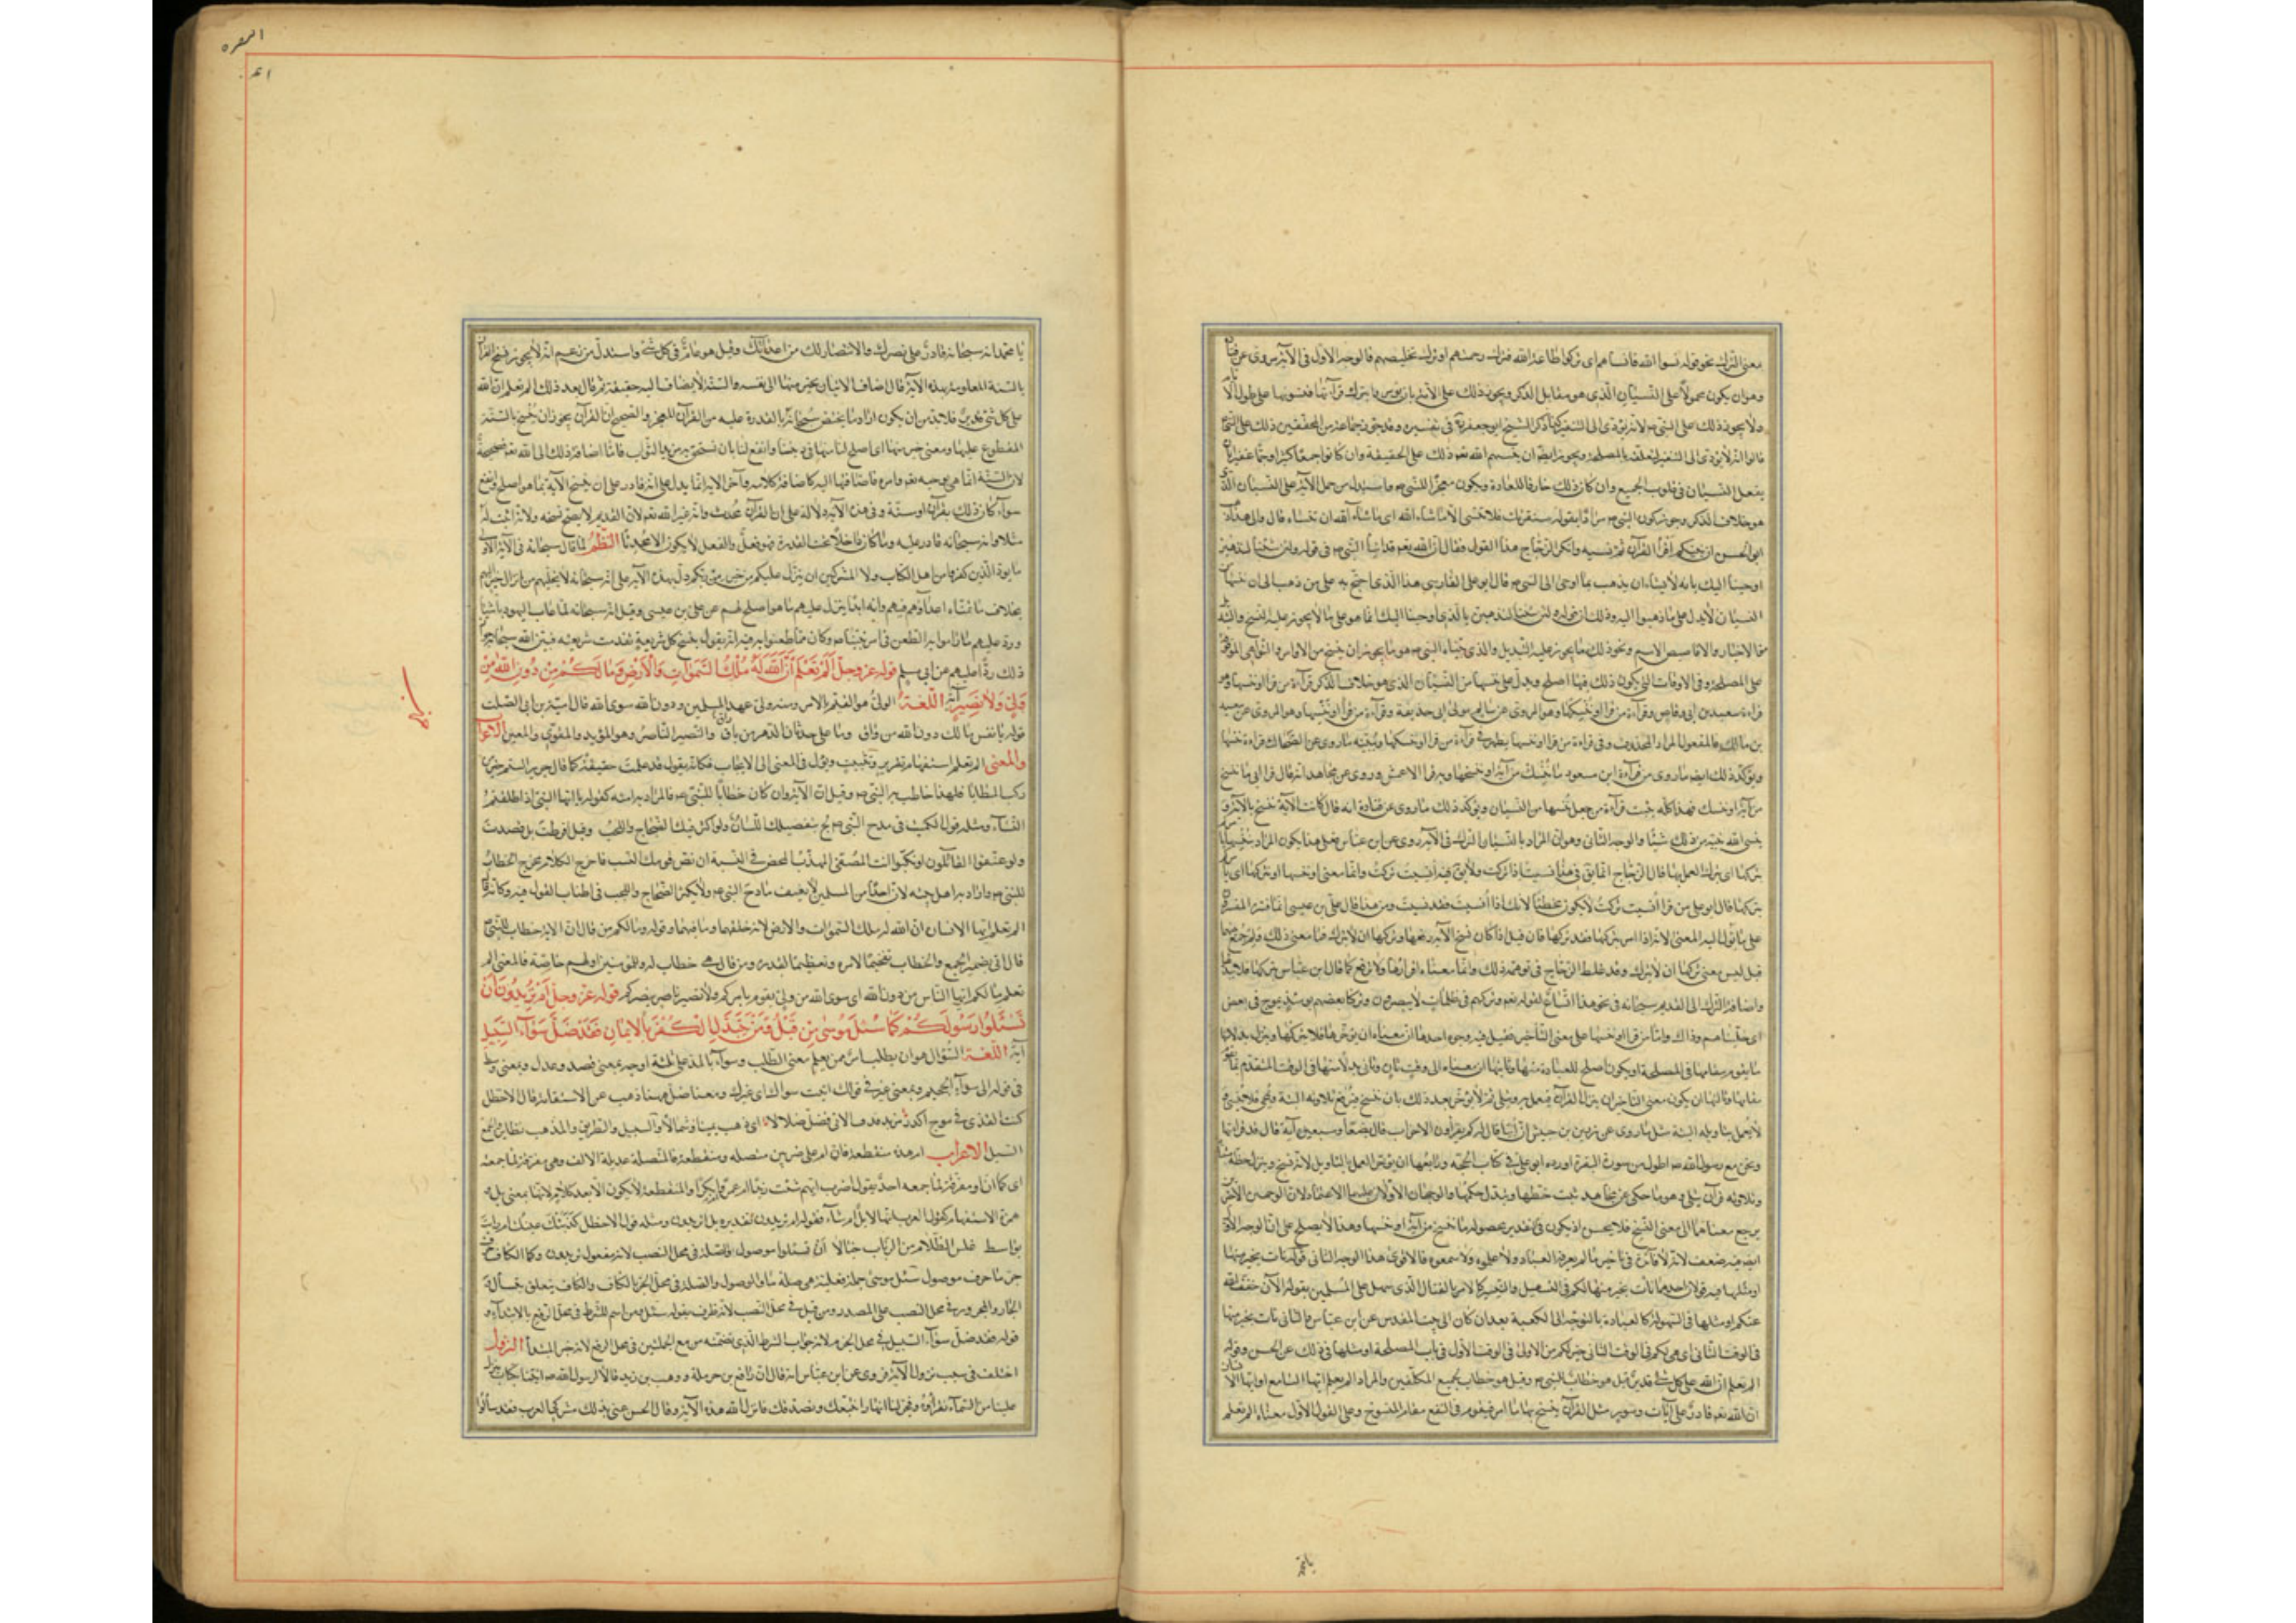 معنى الترك نحو قوله نسوا الله فانساهم اى تركوا طاعة الله فترك رحمتهم او ترك تخليصهم فالوجه الاول فى الآية مروى عن قتادة
وهو ان يكون محمولا على النسيان الذى هو مقابل الذكر ويجوز ذلك على الامة بان يؤمروا بترك قرآءتها فينسونها على طول الايام
ولا يجوز ذلك على النبى ص لانه يؤدى الى التنفير كذا ذكر الشيخ ابو جعفر ره فى تفسيره وقد جوز جماعة من المحققين ذلك على النبى
قالوا انه لا يؤدى الى التنفير لتعلقه بالمصلحة ويجوز ايضا ان ينسيهم الله تعم ذلك على الحقيقة وان كانوا جمعا كثيرا وجما غفيرا بان
يفعل النسيان فى قلوب الجميع وان كان ذلك خارقا للعادة ويكون معجزا للنبى ص واستدل من حمل الآية على النسيان الذى
هو خلاف الذكر وجوز كون النبى ص مرادا بقوله سنقرئك فلا تنسى الا ما شاء الله اى ما شاء الله ان تنساه قال والى هذا ذهب
ابو الحسن ان نبيكم اقرأ القرآن ثم نسيه وانكر الزجاج هذا القول وقال ان الله تعم قد انبأ النبى ص فى قوله ولئن شئنا لنذهبن
اوحينا اليك بانه لا يشاء ان يذهب بما اوحى الى النبى ص قال ابو على الفارسى هذا الذى احتج به على من ذهب الى ان ننسها من
النسيان لا يدل على ما ذهبوا اليه وذلك ان قوله ولئن شئنا لنذهبن بالذى اوحينا اليك انما هو على ما لا يجوز عليه النسخ والتبديل
من الاخبار والاقاصيص الامم ونحو ذلك مما يجوز عليه التبديل والذى ينساه النبى ص هو ما يجوز ان ينسخ من الاوامر والنواهى الموقوفة
على المصلحة وفى الاوقات التى يكون ذلك فيها اصلح ويدل على ننسها من النسيان الذى هو خلاف الذكر قرآءة من قرأ او ننسها وهو
قراءة سعد بن ابى وقاص وقرآءة من قرأ او ننسكها وهو المروى عن سالم مولى ابى حذيفة وقرآءة من قرأ او تنسها وهو المروى عن سعد
بن مالك فالمفعول المراد المحذوف فى قراءة من قرأ او ننسها يظهر فى قرآءة من قرأ او ننسكها ويبينه ما روى عن الضحاك قراءة ننسها
ويؤكد ذلك ايضا ما روى من قرآءة ابن مسعود ما ننسك من آية او ننسخها وبه قرأ الاعمش وروى عن مجاهد انه قال قرأ ابى ما ننسخ
من آية او ننسك فهذا كله يثبت قرآءة من جعل ننسها من النسيان ويؤكد ذلك ما روى عن قتادة انه قال كانت الآية تنسخ بالآية و
ينسى الله نبيه من ذلك شيئا والوجه الثانى وهو ان المراد بالنسيان الترك فى الآية روى عن ابن عباس فعلى هذا يكون المراد بننسها نأمركم
بتركها اى بترك العمل بها قال الزجاج انما يقال فى هذا نسيت اذا تركت ولا يق فيه انسيت تركت وانما معنى او ننسها او نتركها اى نأمركم
بتركها قال ابو على من قرأ انسيت تركت لا يكون مخطئا لانك اذا انسيت فقد نسيت ومن هذا قال على بن عيسى انما فسره المفسرون
على ما يؤل اليه المعنى لانه اذا امر بتركها فقد تركها فان قيل اذا كان نسخ الآية رفعها وتركها ان لا ينزل فما معنى ذلك ولم جمع بينهما
قيل ليس معنى تركها ان لا ينزل وقد غلط الزجاج فى توهمه ذلك وانما معناه اقرارها ولا ترفع كما قال ابن عباس نتركها فلا نبدلها
واضافة الترك الى القديم سبحانه فى نحو هذا اتساع لقوله تعم وتركهم فى ظلمات لا يبصرون وتركنا بعضهم يومئذ يموج فى بعض
اى خليناهم وذاك واما من قرأ او ننسأها على معنى التأخير فقيل فيه وجوه احدها ان معناه ان نؤخرها فلا نتركها وننزل بدلا منها
ما يقوم مقامها فى المصلحة او يكون اصلح للعباد منها وثانيها ان معناه الى وقت ثان ونأتى بدلا منها فى الوقت المتقدم بما يقوم
مقامها وثالثها ان يكون معنى التاخير ان ينزل القرآن فيعمل به ويتلى ثم لا يؤخر بعد ذلك بان ننسخ فيرفع تلاوته البتة ويمحى فلا ننسى و
لا يعمل بتاويله البتة مثل ما روى عن زر بن حبيش ان ابيا قال له كم يقرأون الاحزاب قال بضعا وسبعين آية قال قد قرأتها
ونحن مع رسول الله ص اطول من سورة البقرة اورده ابو على فى كتاب الحجة ورابعها ان يؤخر العمل بالتاويل لانه نسخ ويترك خطه مثبتا
وتلاوته قرآن يتلى وهو ما حكى عن مجاهد يثبت خطها ويبدل حكمها والوجهان الاولان عليهما الاعتماد لان الوجهين الاخيرين
يرجع معناهما الى معنى النسخ فلا يحسن اذ يكون فى تقدير محصوله ما ننسخ من آية او ننسخها وهذا لا يصلح على ان الوجه الاول
ايضا فيه ضعف لانه لا فائدة فى تاخير ما لم يعرفه العباد ولا علموه ولا سمعوه فالاقوى هذا الوجه الثانى قوله نأت بخير منها
او مثلها فيه قولان احدهما نأت بخير منها لكم فى التسهيل والتيسير كالامر بالقتال الذى سهل على المسلمين بقوله الآن خفف الله
عنكم او مثلها فى السهولة كالعبادة بالتوجه الى الكعبة بعد ان كان الى بيت المقدس عن ابن عباس والثانى نأت بخير منها
فى الوقت الثانى اى هى لكم فى الوقت الثانى خير لكم من الاولى فى الوقت الاول فى باب المصلحة او مثلها فى ذلك عن الحسن وقوله
الم تعلم ان الله على كل شئ قدير قيل هو خطاب للنبى ص وقيل هو خطاب لجميع المكلفين والمراد الم تعلم ايها السامع او ايها الانسان
ان الله تعم قادر على آيات وسور مثل القرآن ينسخ بها ما امر فيقوم فى النفع مقام المنسوخ وعلى القول الاول معناه الم تعلم
يا محمد
البقرة
يا محمد انه سبحانه قادر على نصرك والانتصار لك من اعدائك وقيل هو عام فى كل شئ واستدل من زعم انه لا يجوز نسخ القرآن
بالسنة المعلومة بهذه الآية قال اضاف الاتيان بخير منها الى نفسه والسنة لا يضاف اليه حقيقة ثم قال بعد ذلك الم تعلم ان الله
على كل شئ قدير فلا بد من ان يكون اراد ما يختص سبحانه بالقدرة عليه من القرآن المعجز والصحيح ان القرآن يجوز ان ينسخ بالسنة
المقطوع عليها ومعنى خير منها اى اصلح لنا منها فى ديننا وانفع لنا بان نستحق به مزيد الثواب فاما اضافة ذلك الى الله تعم فصحيحة
لان السنة انما هى بوحيه تعم وامره فاضافتها اليه كاضافة كلامه وآخر الآية انما يدل على انه قادر على ان ينسخ الآية بما هو اصلح وانفع
سوآء كان ذلك بقرآن او سنة وفى هذه الآية دلالة على ان القرآن محدث وانه غير الله تعم لان القديم لا يصح نسخه ولانه اثبت له
مثلا وانه سبحانه قادر عليه وما كان داخلا تحت القدرة فهو فعل والفعل لا يكون الا محدثا النظم لما قال سبحانه فى الآية الاولى
ما يود الذين كفروا من اهل الكتاب ولا المشركين ان ينزل عليكم من خير من ربكم دل بهذه الآية على انه سبحانه لا يخليهم من انزال خير اليهم
بخلاف ما تشاء اعداؤهم فيهم وانه ابدا ينزل عليهم ما هو اصلح لهم عن على بن عيسى وقيل انه سبحانه لما عاب اليهود باشياء
ورد عليهم ما راموا به الطعن فى امر نبينا ص وكان مما طعنوا به فيه انه يقول بنسخ كل شريعة تقدمت شريعته فبين الله سبحانه جواز
ذلك ردا عليهم عن ابى مسلم قوله عز وجل الم تعلم ان الله له ملك السموات والارض وما لكم من دون الله من
ولى ولا نصير آية اللغة الولى هو القيم بالامر ومنه ولى عهد المسلمين ودون الله سوى الله قال امية بن ابى الصلت
قوله يا نفس ما لك دون الله من واق وما على حدثان الدهر من باق والنصير الناصر وهو المؤيد والمقوى والمعين الاعراب
والمعنى الم تعلم استفهام تقرير وتثبيت ويؤل فى المعنى الى الايجاب فكانه يقول قد علمت حقيقة كما قال جرير الستم خير من
ركب المطايا فلهذا خاطب به النبى ص وقيل ان الآية وان كان خطابا للنبى ص فالمراد به امته كقوله يا ايها النبى اذا طلقتم
النساء ومثله قول الكميت فى مدح النبى ص لج بتفضيلك اللسان ولو اكثر فيك الضجاج واللجب وقيل افرطت بل قصدت
ولو عنفوا القائلون او ثلبوا انت المصفى المهذب المحض فى النسبة ان نص قومك النسب فاخرج الكلام مخرج الخطاب
للنبى ص واراد به اهل بيته لان احدا من المسلمين لا يعنف مادح النبى ص ولا يكثر الضجاج واللجب فى اطناب القول فيه وكانه قال
الم تعلم ايها الانسان ان الله له ملك السموات والارض لانه خلقهما وما فيهما وقوله وما لكم من قال ان الآية خطاب للنبى ص
قال اتى بضمير الجمع والخطاب تفخيما لامره وتعظيما لقدره ومن قال هى خطاب له وللمؤمنين او لهم خاصة فالمعنى الم
تعلموا ما لكم ايها الناس من دون الله اى سوى الله من ولى يقوم بامركم ولا نصير ناصر ينصركم قوله عز وجل ام تريدون ان
تسئلوا رسولكم كما سئل موسى من قبل ومن يتبدل الكفر بالايمان فقد ضل سوآء السبيل
آية اللغة السؤال هو ان يطلب امر ممن يعلم معنى الطلب وسوآء بالمد على ثلثة اوجه بمعنى قصد وعدل وبمعنى وسط
فى قوله الى سوآء الجحيم وبمعنى غير فى قولك اتيت سواك اى غيرك ومعنى ضل ههنا ذهب عن الاستقامة قال الاخطل
كنت القذى فى موج اكدر مزبد قذف الاتى فضل ضلالا اى ذهب يمينا وشمالا والسبيل والطريق والمذهب نظائر وجمع
السبيل الاعراب ام هذه منقطعة فان ام على ضربين متصلة ومنقطعة فالمتصلة عديلة الالف وهى مفرقة لما جمعته
اى كما ان او مفرقة لما جمعه احد يقول اضرب ايهم شئت زيدا ام عمرا ام بكرا والمنقطعة لا يكون الا بعد كلام لانها بمعنى بل و
همزة الاستفهام كقول العرب انها لابل ام شاء فقوله ام تريدون تقديره بل اتريدون ومثله قول الاخطل كذبتك عينك ام رأيت
بواسط غلس الظلام من الرباب خيالا ان تسئلوا موصول وصلة فى محل النصب لانه مفعول تريدون وكما الكاف حرف
جر ما حرف موصول سئل موسى جملة فعلية هى صلة ما والموصول والصلة فى محل الجر بالكاف والكاف يتعلق بتسألوا
الجار والمجرور فى محل النصب على المصدر ومن قبل فى محل النصب لانه ظرف بقوله سئل ومن اسم للشرط فى محل الرفع بالابتداء و
قوله فقد ضل سوآء السبيل فى محل الجزم لانه جواب الشرط الذى تضمنه من مع الجملتين فى محل الرفع لانه خبر المبتدأ النزول
اختلف فى سبب نزول الآية فروى عن ابن عباس انه قال ان رافع بن حرملة ووهب بن زيد قالا لرسول الله ص ائتنا بكتاب تنزله
علينا من السماء نقرأوه وفجر لنا انهارا نتبعك ونصدقك فانزل الله هذه الآية وقال الحسن عنى بذلك مشركى العرب وقد سألوا